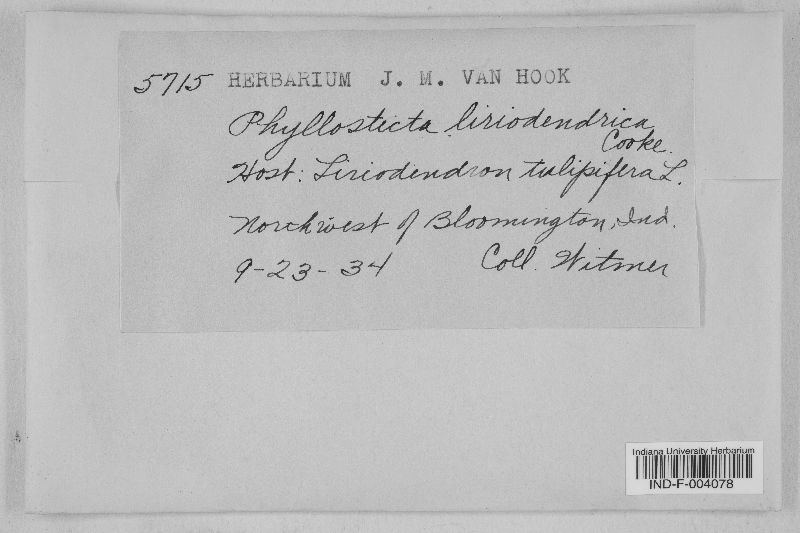 5715 HERBARIUM J. M. VAN HOOK
Phyllosticta liriodendrica
Cooke.
Host: Liriodendron tulipifera L.
Northwest of Bloomington, Ind.
9-23-34 Coll. Witmer
Indiana University Herbarium
IND-F-004078